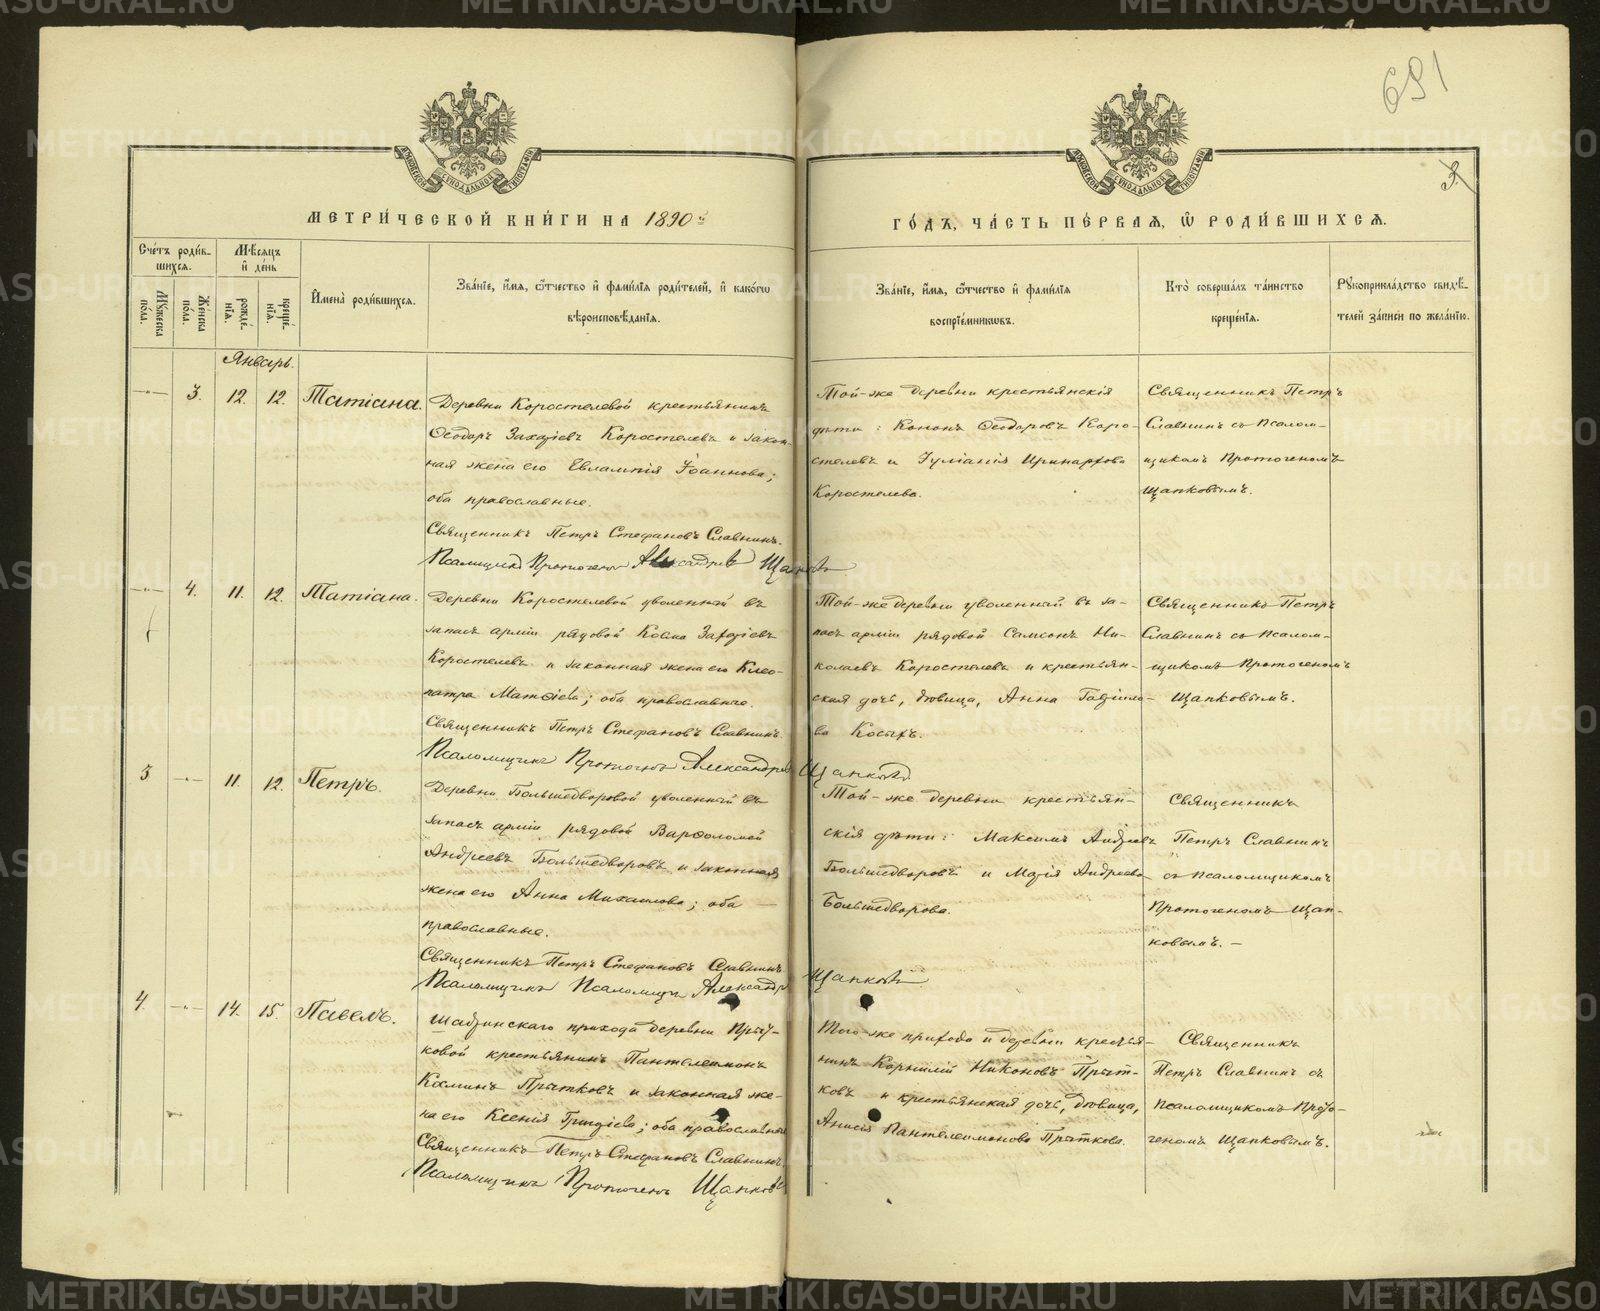 691
3.
МЕТРИ́ЧЕСКОЙ КНИ́ГИ НА 1890 й
ГО́ДЪ, ЧА́СТЬ ПЕ́РВАѦ, Ѡ҆ РОДИ́ВШИХСѦ.
Сче́тъ роди́в-
шихсѧ.
Мꙋжеска по́ла.
Же́нска по́ла.
Мѣ́сѧцъ
и҆ де́нь
рожде́-
нїѧ.
креще́-
нїѧ.
И҆мена̀ роди́вшихсѧ.
Зва́нїе, и҆́мѧ, ѻ҆́тчество и҆ фами́лїѧ роди́телей, и҆ како́гѡ
вѣроисповѣ́данїѧ.
Зва́нїе, и҆́мѧ, ѻ҆́тчество и҆ фами́лїѧ
воспрїе́мникѡвъ.
Кто̀ соверша́лъ та́инство
креще́нїѧ.
Рꙋкоприкла́дство свидѣ́-
телей за́писи по жела́нїю.
Январь.
3. 12. 12. Татіана.
Деревни Коростелевой крестьянинъ
Ѳеодоръ Захаріевъ Коростелевъ и закон-
ная жена его Евлампія Іоаннова;
оба православные.
Священникъ Петръ Стефановъ Славнинъ.
Псаломщикъ Протогенъ Александровъ Щапковъ
Той-же деревни крестьянскія
дѣти: Кононъ Ѳеодоровъ Коро-
стелевъ и Іуліанія Иринархова
Коростелева.
Священникъ Петръ
Славнинъ съ псалом-
щикомъ Протогеномъ
Щапковымъ.
4. 11. 12. Татіана.
Деревни Коростелевой уволенный въ
запасъ арміи рядовой Косма Захаріевъ
Коростелевъ и законная жена его Клео-
патра Матѳіева; оба православные.
Священникъ Петръ Стефановъ Славнинъ.
Псаломщикъ Протогенъ Александровъ Щапковъ
Той-же деревни уволенный въ за-
пасъ арміи рядовой Самсонъ Ни-
колаевъ Коростелевъ и крестьян-
ская дочь, дѣвица, Анна Гавріило-
ва Косыхъ.
Священникъ Петръ
Славнинъ съ псалом-
щикомъ Протогеномъ
Щапковымъ.
3 11. 12. Петръ.
Деревни Большедворовой уволенный въ
запасъ арміи рядовой Варѳоломей
Андреевъ Большедворовъ и законная
жена его Анна Михаилова; оба —
православные.
Священникъ Петръ Стефановъ Славнинъ
Псаломщикъ Псаломщикъ Александръ Щапковъ
Той-же деревни крестьян-
скія дѣти: Максимъ Андреевъ
Большедворовъ и Марія Андреева
Большедворова.
Священникъ
Петръ Славнинъ
съ псаломщикомъ
Протогеномъ Щап-
ковымъ. —
4. 14. 15. Павелъ.
Шадринскаго прихода деревни Прыт-
ковой крестьянинъ Пантелеимонъ
Косминъ Прытковъ и законная же-
на его Ксенія Григоріева; оба православные
Священникъ Петръ Стефановъ Славнинъ
Псаломщикъ Протогенъ Щапковъ
Того-же прихода и деревни крестья-
нинъ Корнилій Никоновъ Прыт-
ковъ и крестьянская дочь, дѣвица,
Анисія Пантелеимонова Прыткова.
Священникъ
Петръ Славнинъ съ
псаломщикомъ Прото-
геномъ Щапковымъ.
METRIKI.GASO-URAL.RU